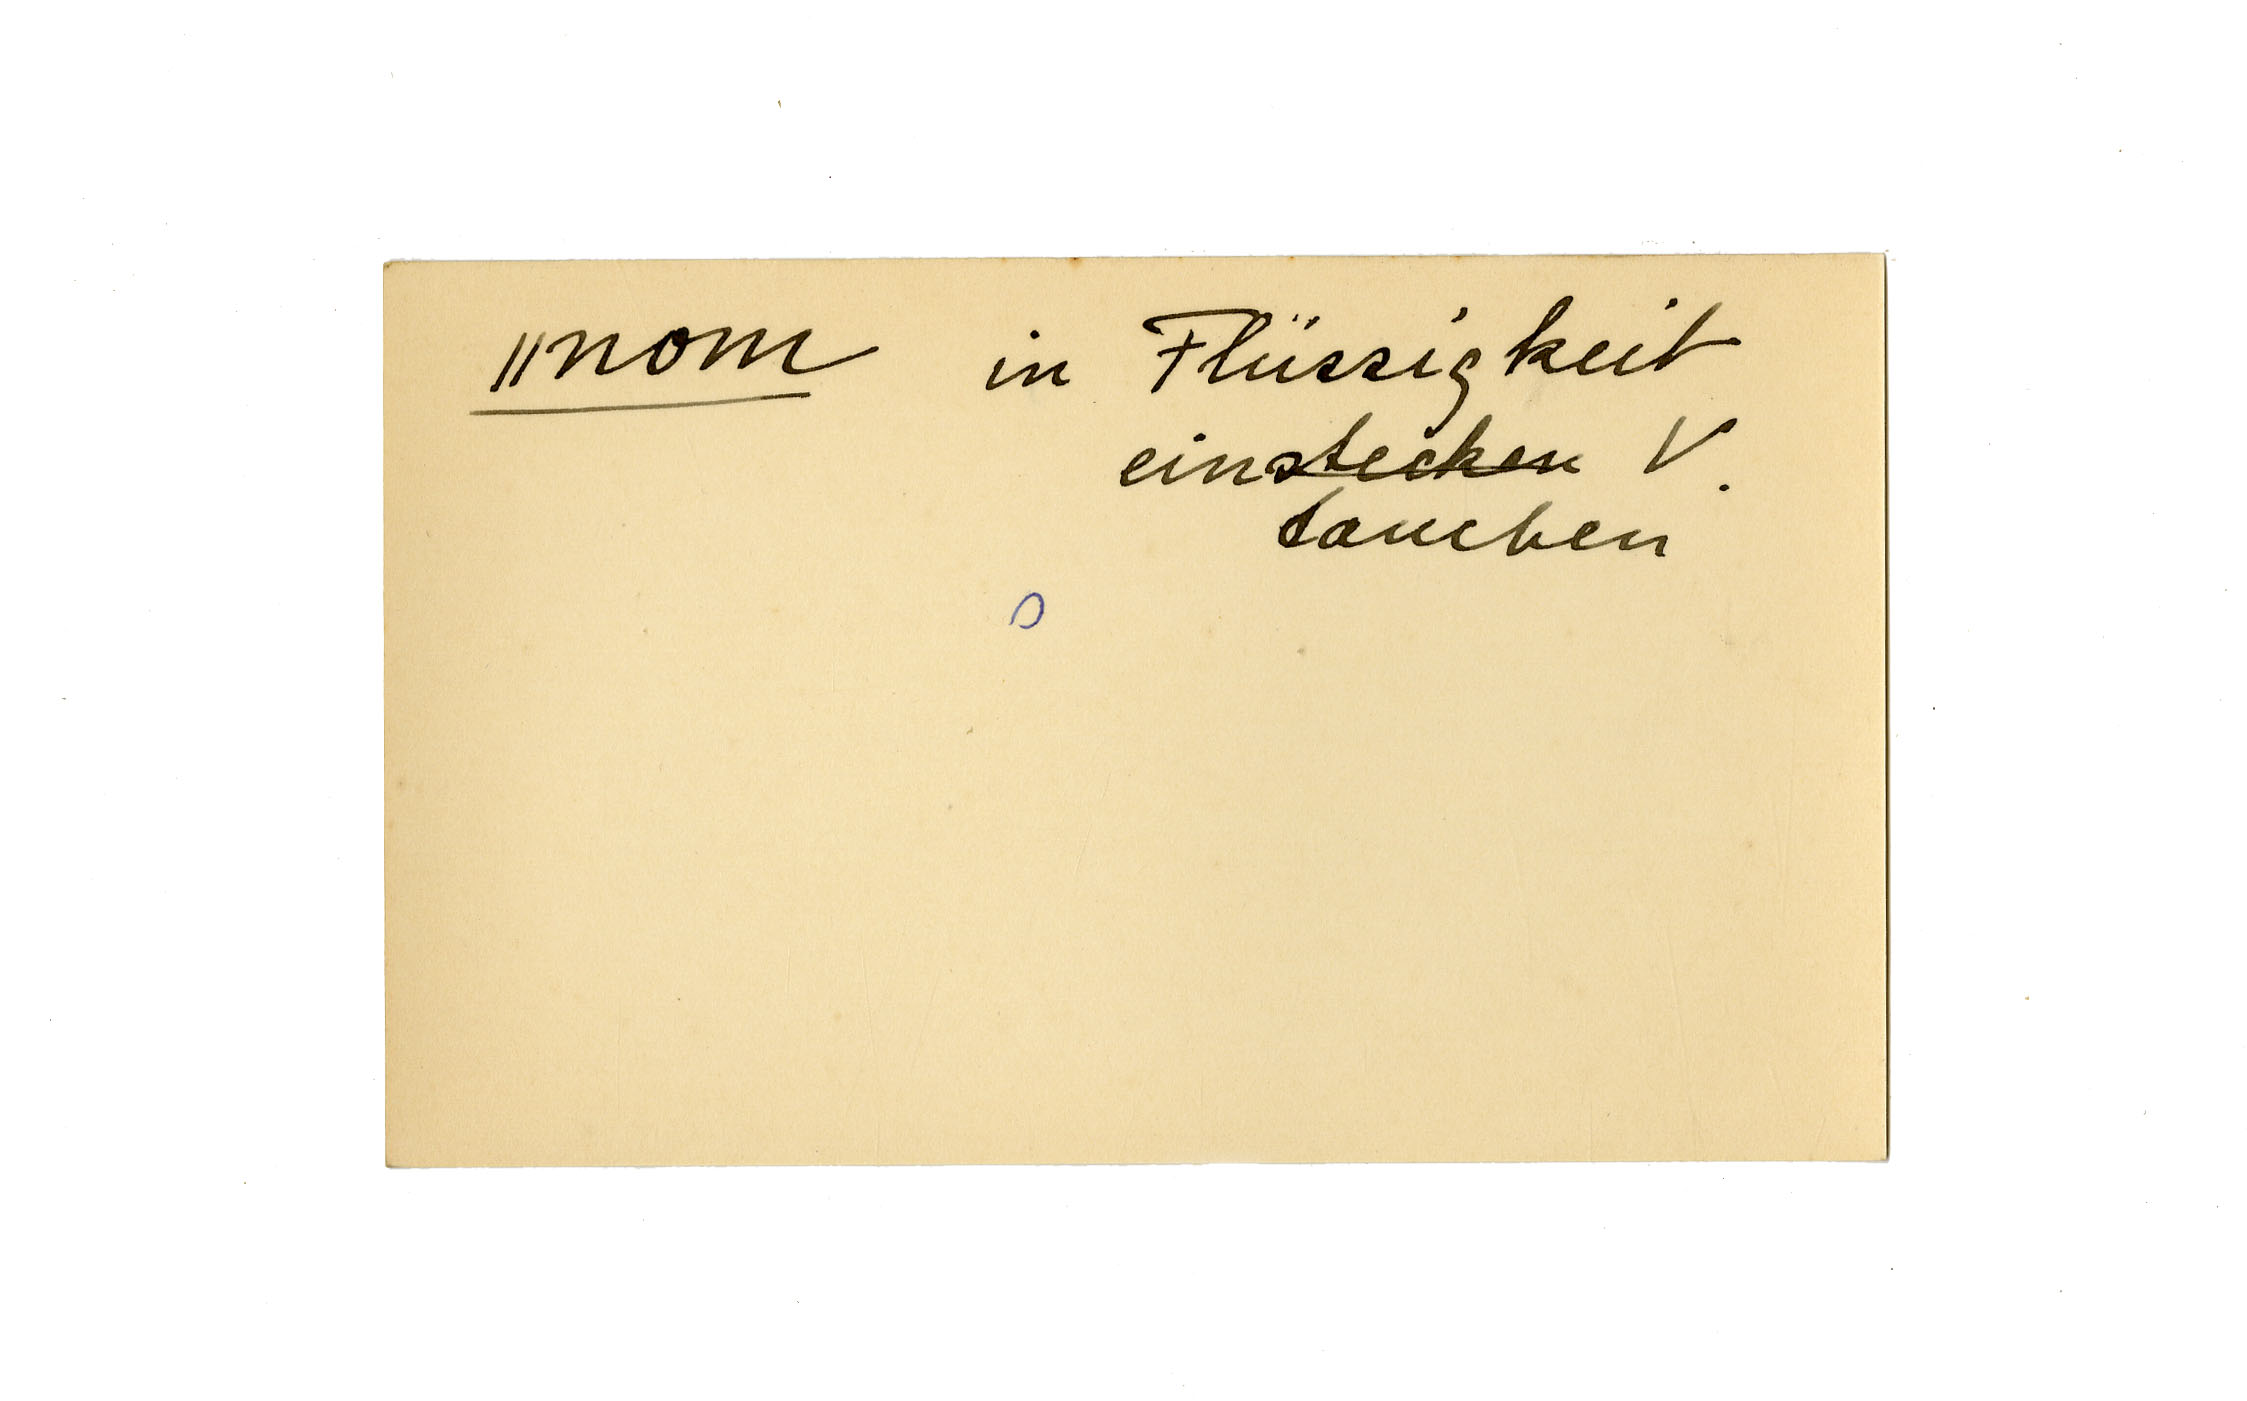 ǁnom in Flüssigkeit
einstecken V.
tauchen